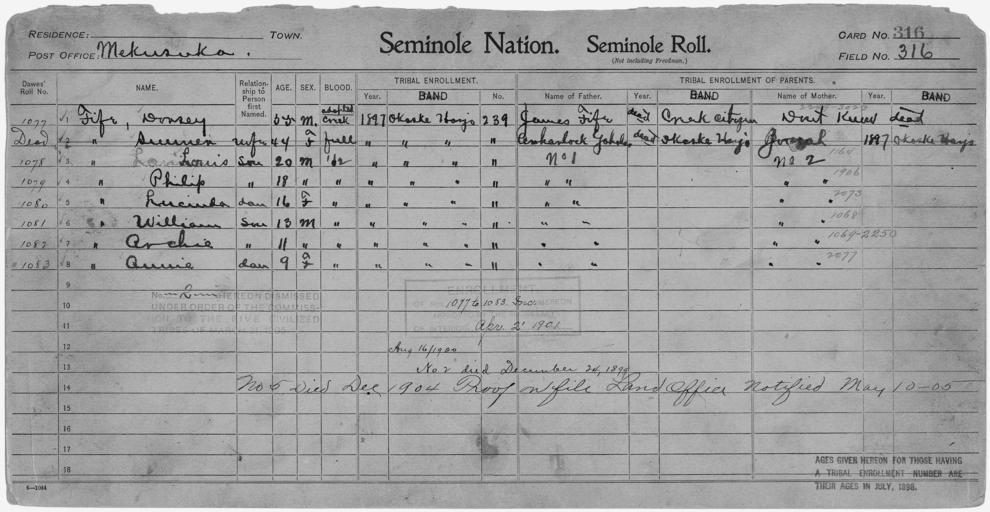 RESIDENCE: TOWN.
POST OFFICE: Mekusuka.
Seminole Nation. Seminole Roll.
(Not including Freedmen.)
CARD NO. 316
FIELD NO. 316
Dawes' Roll No. NAME. Relationship to Person first Named. AGE. SEX. BLOOD. TRIBAL ENROLLMENT. TRIBAL ENROLLMENT OF PARENTS.
Year. BAND No. Name of Father. Year. BAND Name of Mother. Year. BAND
1077 1 Fife, Dorsey 55 M. adopted Creek 1897 Okoske Harjo 239 James Fife dead Creek Citizen Don't Know dead
Dead 2 " wife 44 F full " " " " dead Okoske Harjo 1897 Okoske Harjo
1078 3 " Louis Son 20 M 1/2 " " " " No 1 No 2
1079 4 " Philip " 18 " " " " " " " " " " 1906
1080 5 " Lucinda dau 16 F " " " " " " " " " 2073
1081 6 " William Son 13 M " " " " " " " " " 1068
1082 7 " Archie " 11 " " " " " " " " " " 1069-2250
1083 8 " Annie dau 9 F " " " " " " " " " 2077
9
No. 2 HEREON DISMISSED
UNDER ORDER OF THE COMMISSION
TO THE FIVE CIVILIZED
TRIBES OF
ENROLLMENT
10 1077 to 1083 Inc. HEREON
OF INTERIOR Apr. 2' 1901
11
12 Aug 16/1900
13 No 2 died December 24, 1899
14 No 5 Died Dec 1904 Proof on file Land Office Notified May 10-05
15
16
17
18
AGES GIVEN HEREON FOR THOSE HAVING
A TRIBAL ENROLLMENT NUMBER ARE
THEIR AGES IN JULY, 1898.
6—1044